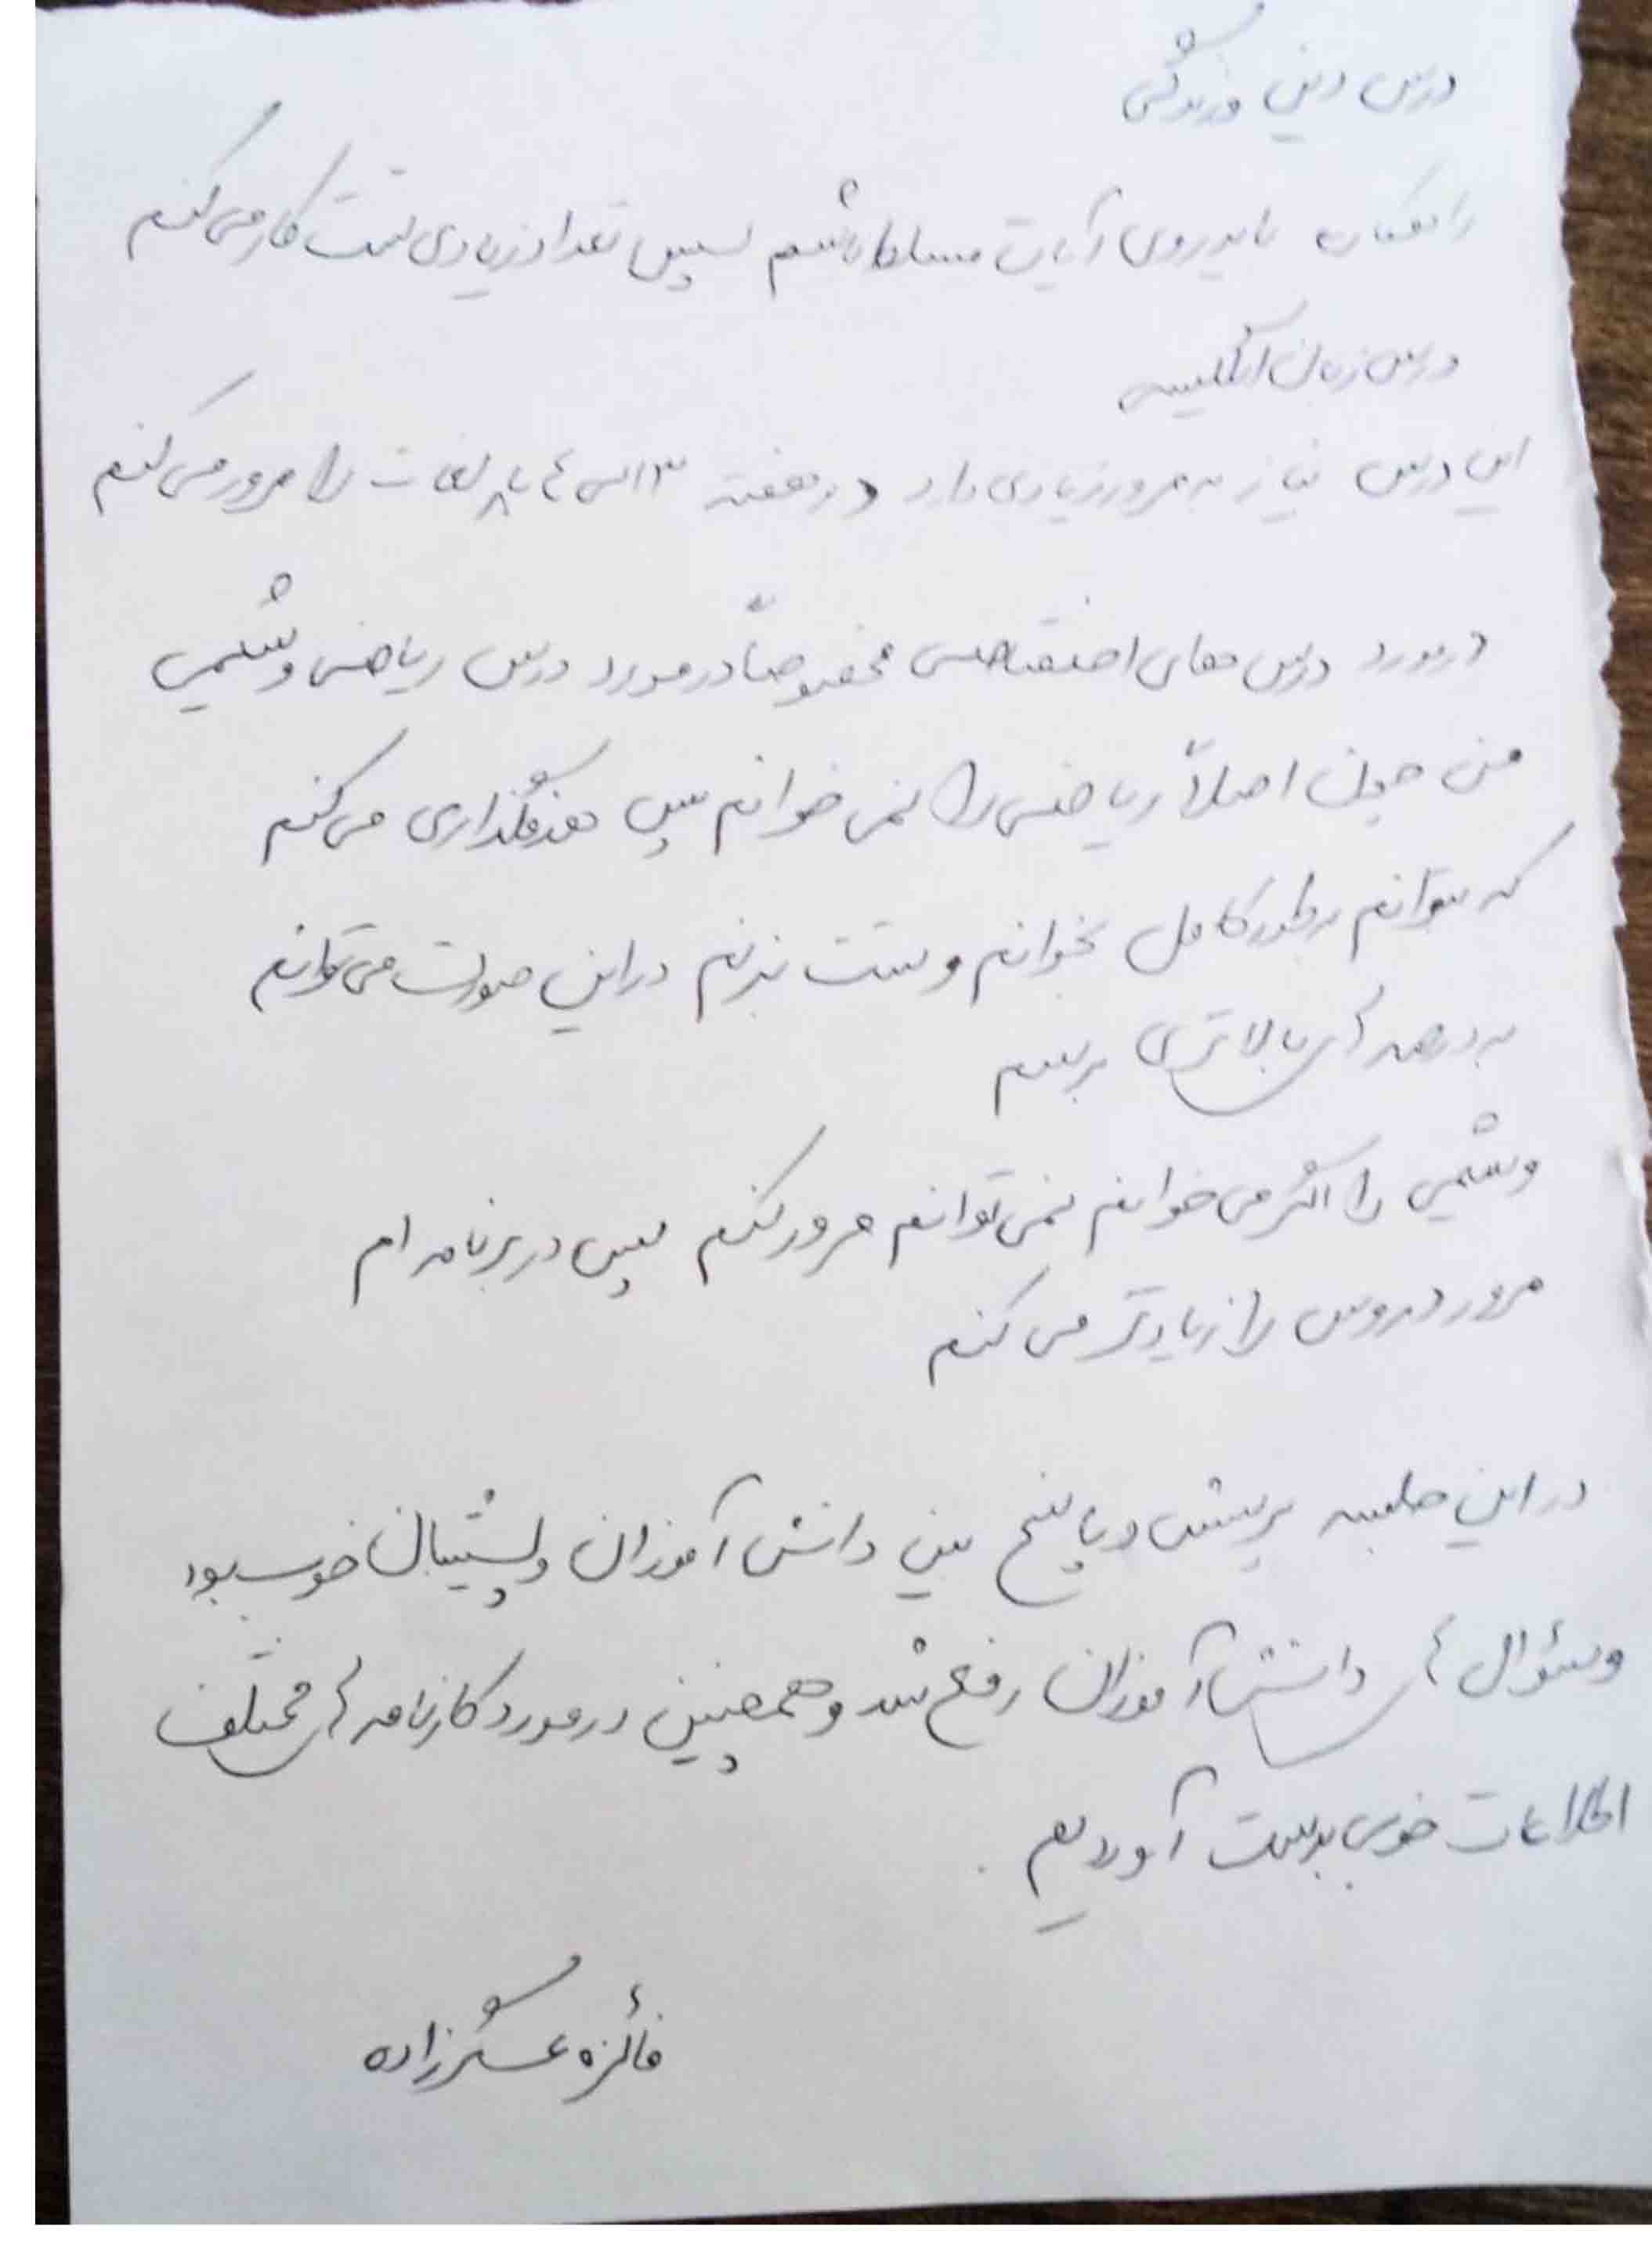 درس دینی وزندگی
باید روی آیات مسلط باشم سپس تعداد زیادی تست کار می کنم
درس زبان انگلیسی
این درس نیاز به مرور زیادی دارد در هفته لغات را مرور می کنم
در مورد درس های اختصاصی مخصوصاً در مورد درس ریاضی و شیمی
من چون اصلاً ریاضی را نمی خوانم پس هدفگذاری می کنم
که بتوانم بطور کامل بخوانم و تست بزنم در این صورت می توانم
به درصد های بالاتری برسم
و شیمی را اگر می خوانم نمی توانم مرور کنم پس در برنامه ام
مرور دروس را زیادتر می کنم
در این جلسه پرسش و پاسخ بین دانش آموزان و پشتیبان خوب بود
و سؤال های دانش آموزان رفع شد و همچنین در مورد کارنامه های مختلف
اطلاعات خوبی بدست آوردیم .
فائزه عسگرزاده